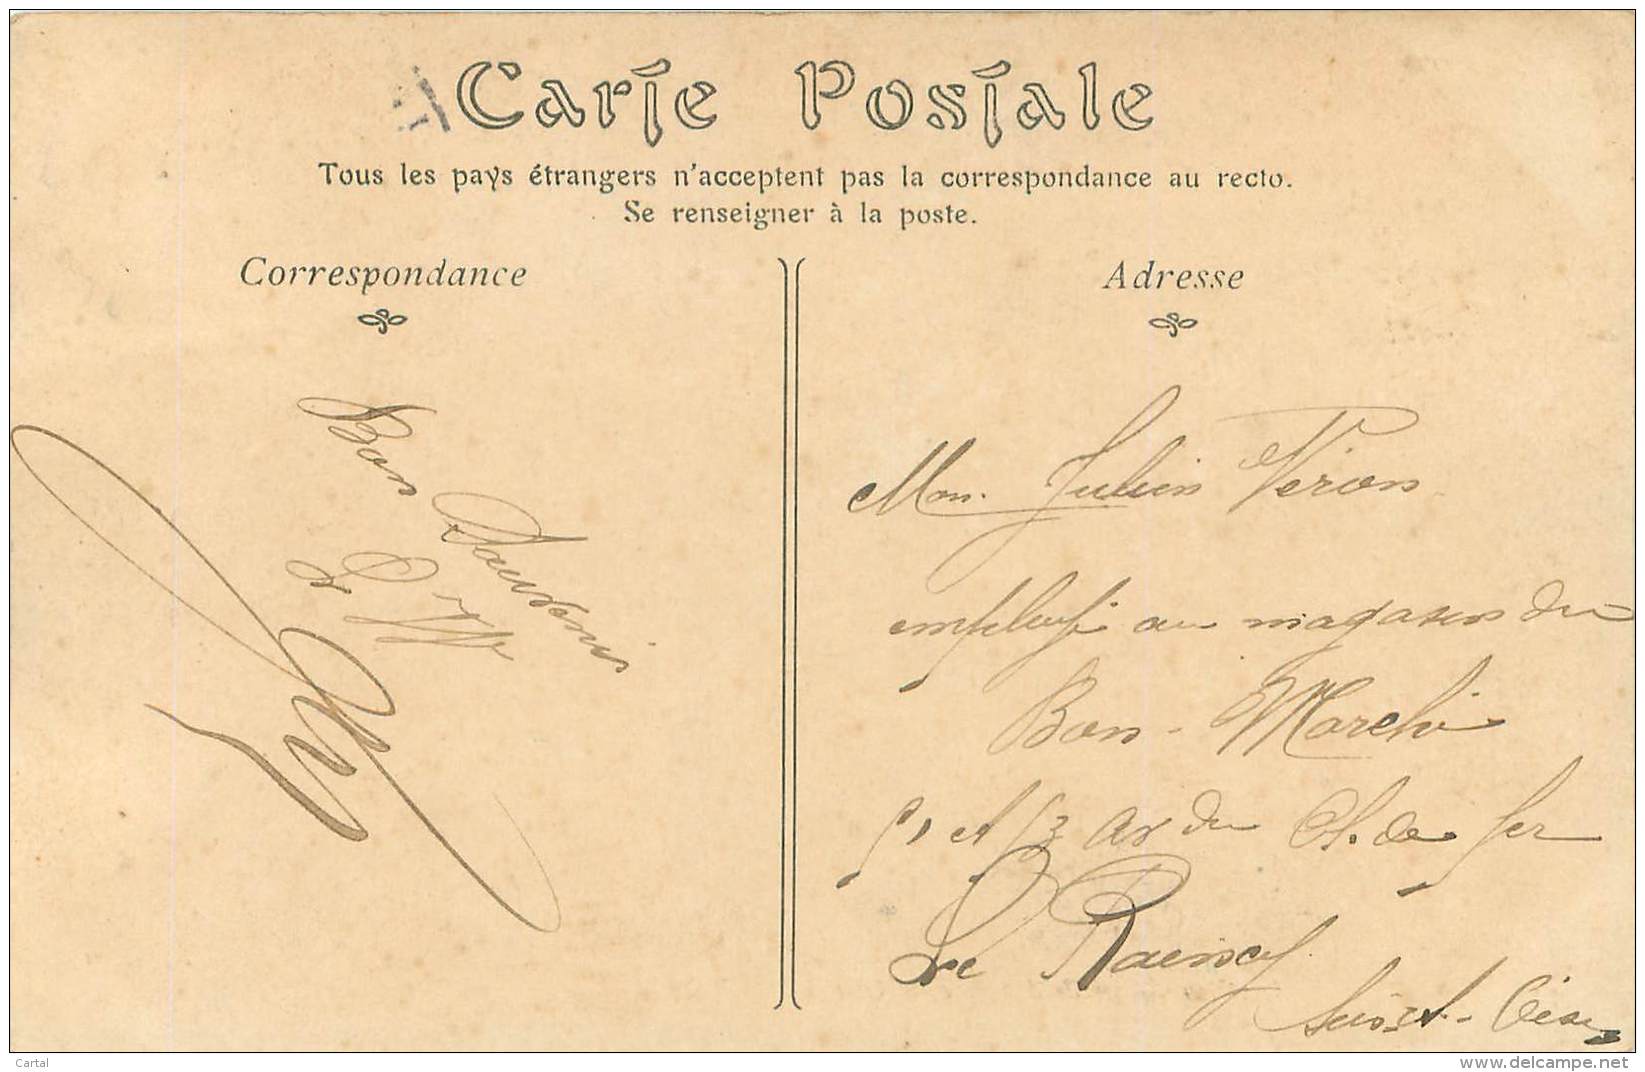 Carte Postale
Tous les pays étrangers n'acceptent pas la correspondance au recto.
Se renseigner à la poste.
Correspondance
Adresse
Bon Souvenir
Mon. Julien Véron
employé au magasin du
Bon-Marché
et 13 av du Ch. de fer
Le Raincy
Seine et-Oise
Cartal
www.delcampe.net